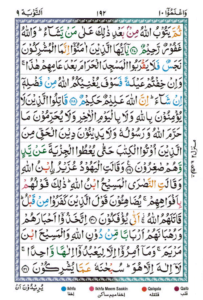 وَاعْلَمُوْٓا ١٠
١٩٢
التَّوْبَة ٩
ثُمَّ يَتُوْبُ اللّٰهُ مِنْۢ بَعْدِ ذٰلِكَ عَلٰى مَنْ يَّشَآءُ ؕ وَاللّٰهُ
غَفُوْرٌ رَّحِيْمٌ يٰۤاَيُّهَا الَّذِيْنَ اٰمَنُوْۤا اِنَّمَا الْمُشْرِكُوْنَ
نَجَسٌ فَلَا يَقْرَبُوا الْمَسْجِدَ الْحَرَامَ بَعْدَ عَامِهِمْ هٰذَا ۚ
وَاِنْ خِفْتُمْ عَيْلَةً فَسَوْفَ يُغْنِيْكُمُ اللّٰهُ مِنْ فَضْلِهٖۤ
اِنْ شَآءَ ؕ اِنَّ اللّٰهَ عَلِيْمٌ حَكِيْمٌ قَاتِلُوا الَّذِيْنَ لَا
يُؤْمِنُوْنَ بِاللّٰهِ وَلَا بِالْيَوْمِ الْاٰخِرِ وَلَا يُحَرِّمُوْنَ مَا
حَرَّمَ اللّٰهُ وَرَسُوْلُهٗ وَلَا يَدِيْنُوْنَ دِيْنَ الْحَقِّ مِنَ
الَّذِيْنَ اُوْتُوا الْكِتٰبَ حَتّٰى يُعْطُوا الْجِزْيَةَ عَنْ يَّدٍ
وَّهُمْ صٰغِرُوْنَ وَقَالَتِ الْيَهُوْدُ عُزَيْرُ ۨابْنُ اللّٰهِ
وَقَالَتِ النَّصٰرَى الْمَسِيْحُ ابْنُ اللّٰهِ ؕ ذٰلِكَ قَوْلُهُمْ
بِاَفْوَاهِهِمْ ۚ يُضَاهِـُٔوْنَ قَوْلَ الَّذِيْنَ كَفَرُوْا مِنْ قَبْلُ ؕ
قَاتَلَهُمُ اللّٰهُ ۚ اَنّٰى يُؤْفَكُوْنَ اِتَّخَذُوْۤا اَحْبَارَهُمْ
وَرُهْبَانَهُمْ اَرْبَابًا مِّنْ دُوْنِ اللّٰهِ وَالْمَسِيْحَ ابْنَ
مَرْيَمَ ۚ وَمَاۤ اُمِرُوْۤا اِلَّا لِيَعْبُدُوْۤا اِلٰهًا وَّاحِدًا ۚ
لَاۤ اِلٰهَ اِلَّا هُوَ ؕ سُبْحٰنَهٗ عَمَّا يُشْرِكُوْنَ
Ikhfa Meem Saakin
Qalqala
Qalb